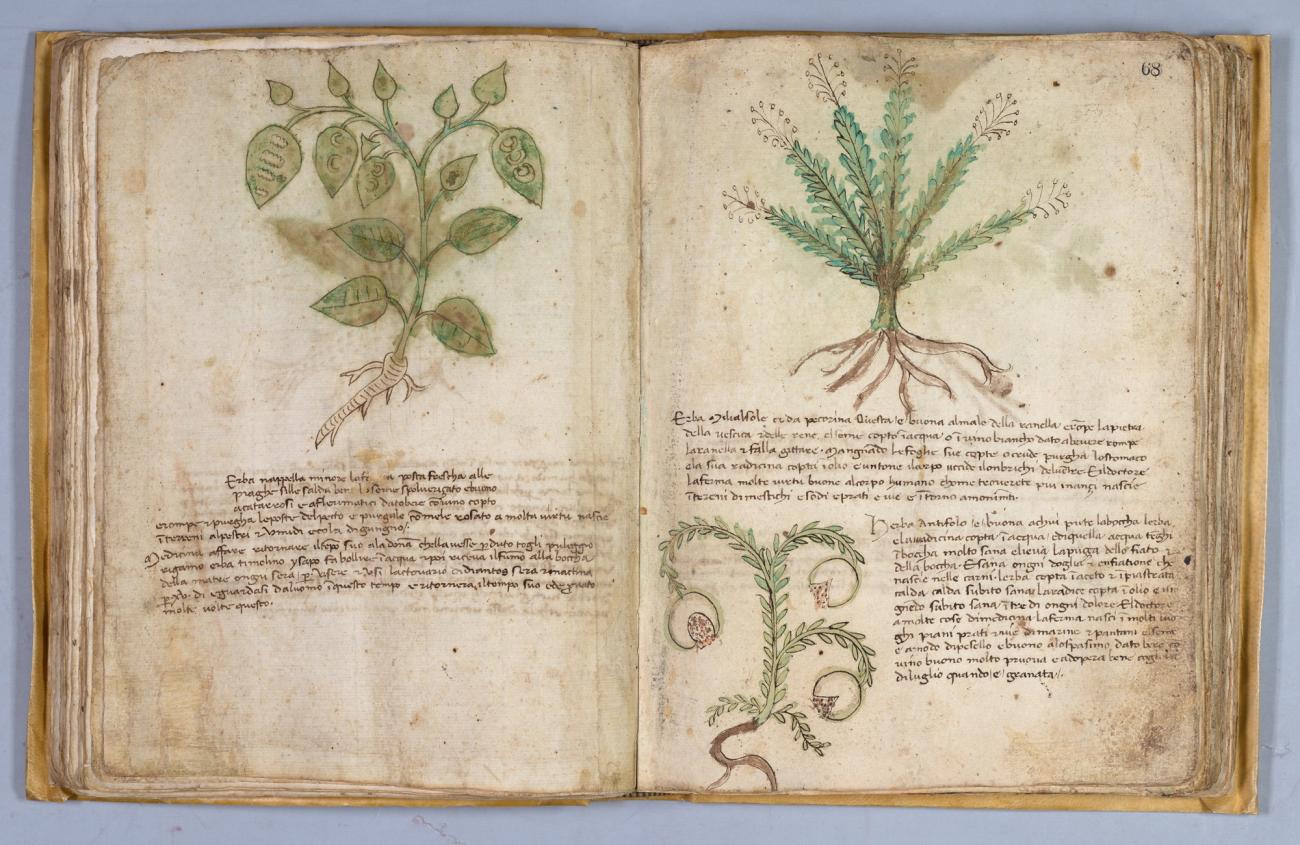 Erba nappella minore la fo a posta frescha alle
piaghe elle salda ben lo seme spolverigato e buono
a catarrosi e afleumatici dato bere cō vino copto
e rompe e purgha le poste del pecto e purgale cō mele rosato a molta virtu nasce
ī terreni alpestri e humidi e colz di giugno
Medicina affare ritornare il tēpo suo a la dona chellavesse pduto togli puleggio
rigamo erba timolino ysapo fa bollire ī acqua e poi riceva il fumo alla boccha
della matre ongni sera e usi lactovaro sera e mactina
di e guardasi daluomo ī questo tempo e ritornera il tempo suo
molte volte questo
68
Erba Mivalsole e da pecorina Questa e buona al male della ranella e rōpe la pietra
della vescica e delle rene el seme copto ī acqua o ī vino biancho dato a bevere rompe
la ranella e falla gittare Mangiādo le foglie sue copte o crude purgha lo stomaco
e la sua radicina copta ī olio e untone il corpo uccide i lonbrichi del vētre El doctore
laferma molte virtu buone al corpo humano chome troverete piu inanzi nascie
ī terreni dimestichi e sodi e prati e vie e ītorno a monimēti
Herba Antifolo e buona achui pute la boccha lerba
e la radicina copta ī acqua e di quella acqua teghi
ī boccha molto sana e lieva la puzza dello fiato
della boccha E sana ongni doglia e enfiatione che
nascie nelle carni lerba copta ī aceto e īpiastrata
calda calda subito sana la radice copta ī olio e un
giēdo subito sana ī tre di ongni dolore El doctore
a molte cose di medicina laferma nasci ī molti luo
ghi piani prati e rive di marine e pantani el seme
e a modo di pesello e buono dato bere co
vino buono molto pruova e adopera bene
di luglio quando e granata